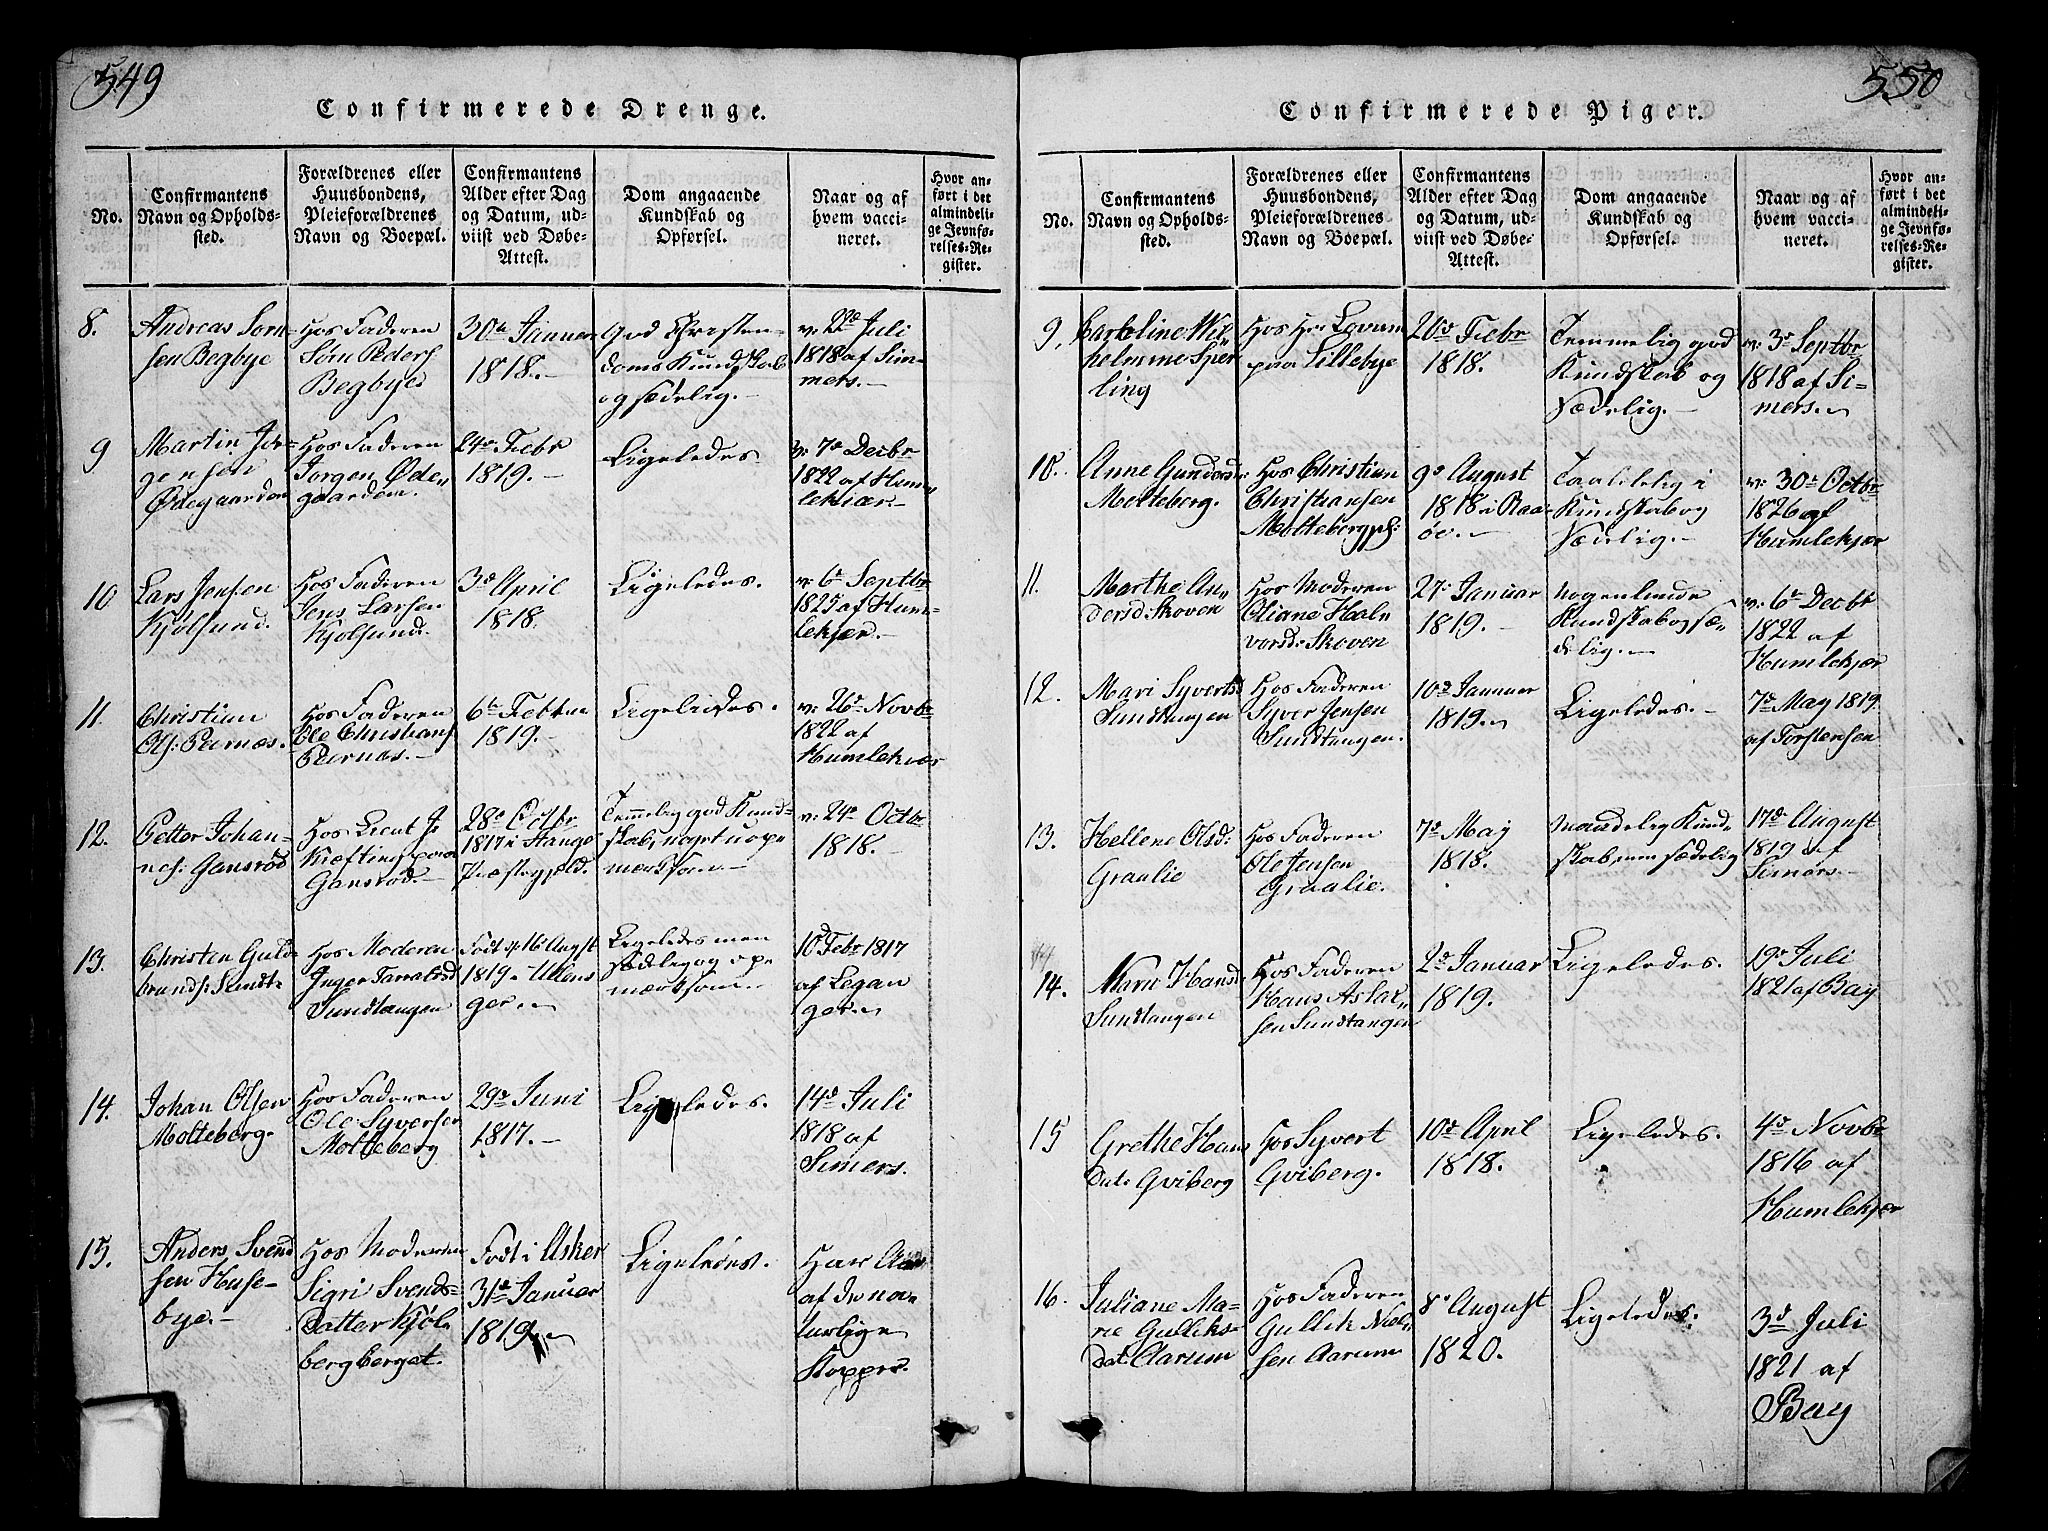 549
Confirmerede Drenge.
No.
Confirmantens
Navn og Opholds-
sted.
Forældrenes eller
Huusbondens,
Pleieforældrenes
Navn og Boepæl.
Confirmantens
Alder efter Dag
og Datum, ud-
viist ved Døbe-
Attest.
Dom angaaende
Kundskab og
Opførsel.
Naar og af
hvem vacci-
neret.
Hvor an-
ført i det
almindeli-
ge Jevnfø-
relses-Re-
gister.
8.
Andreas Sørn-
sen Begbye
Hos Faderen
Sörn Peders
Begbye
30te Januar
1818.-
God Christen-
doms Kundskab
og sædelig.-
v: 22de Juli
1818 af Sim-
mers.-
9
Martin Jör-
gensen
Ødegaarden
Hos Faderen
Jørgen Øde-
gaarden.
24de Febr
1819.-
Ligeledes
v: 7de Decbr
1822 af Hum-
lekiær.-
10
Lars Jensen
Kjølsund.
Hos Faderen
Jens Larsen
Kjolsund.
3de April
1818.
Ligeledes.
v: 6te Septbr
1825 af Hum-
lekjær.-
11.
Christian
Ols: Pernæs.
Hos Faderen
Ole Christians
Pernæs.-
6te
1819.-
Ligeledes.
v: 26de Novbr
1822 af
Humlekiær
12.
Petter Johan-
nes: Gansrød
Hos Lieut J:
Kræfting paa
Gansrød.-
28de Octbr
1817 i Stange
Præstegjeld.
Temmelig god Kund-
skab, noget uop-
mærksom.-
v: 24de Octbr
1818.-
13.
Christen Guld-
brands: Sundt-
Hos Moderen
Inger Tarraldsd
Sundtangen
Født d: 16 Augst
1819 i Ullens
ger.
Ligeledes men
sædelig og op-
mærksom.-
10d Febr 1817
af Legan
ger.
14.
Johan Olsen
Molteberg.
Hos Faderen
Ole Syversen
Molteberg
29de Juni
1817.-
Ligeledes.
14de Juli
1818 af
Simers.
15.
Anders Svend
sen Huse-
bye.-
Hos Moderen
Sigri Svends-
Datter Kjöl-
bergberget.
Født i Asker
31te Januar
1819.
Ligeledes.
Har
af de na-
turlige
Kopper.
550
Confirmerede Piger.
No.
Confirmantens
Navn og Opholds-
sted.
Forældrenes eller
Huusbondens,
Pleieforældrenes
Navn og Boepæl.
Confirmantens
Alder efter Dag
og Datum, ud-
viist ved Døbe-
Attest.
Dom angaaende
Kundskab og
Opførsel.
Naar og af
hvem vacci-
neret.
Hvor an-
ført i det
almindeli-
ge Jevnfø-
relses-Re-
gister.
9.
Wil-
helmine Sper
ling
Hos Hr: Lovum
paa Lillebye
20de Febr
1818.
Temmelig god
Kundskab og
Sædelig.-
v: 3de Septbr
1818 af Si-
mers.
10.
Anne Gundersd:
Molteberg.
Hos Christian
Christiansen
Moltebergpl:
9de August
1818 i Raa-
öe.-
Taalelig i
Kundskab og
Sædelig.-
v: 30te Octbr
1826 af
Humlekjær
11.
Marthe An-
dersd Skoven
Hos Moderen
Oliane Hal-
vorsd: Skoven
27: Januar
1819.-
Nogenlunde
Kundskab og sæ-
delig.-
v: 6te Decbr
1822 af
Humlekjær
12.
Mari Syvertsd
Sundtangen
Hos Faderen
Syver Jensen
Sundtangen.
10de Januar
1819.
Ligeledes.-
7de May 1819
af Torstensen
13.
Hellene Olsd:
Graalie
Hos Faderen
Ole Jensen
Graalie.
7de May
1818.
Maadelig Kund-
skab men sædelig
17de August
1819 af
Simers.-
14.
Karn Hansd
Sundtangen
Hos Faderen
Hans Aslak-
sen Sundtangen
2de Januar
1819.
Ligeledes.
19de Juli
1821 af Bay
15
Grethe Hans
Dat: Gviberg
Hos Syvert
Gviberg.
10de April
1818.
Ligeledes.
4de Novbr
1816 af
Humlekjær
16.
Juliane Ma-
rie Gulliks-
dat: Aarum
Hos Faderen
Gullik Niel-
sen Aarum
8de August
1820.
Ligeledes.
3de Juli
1821 af
Bay